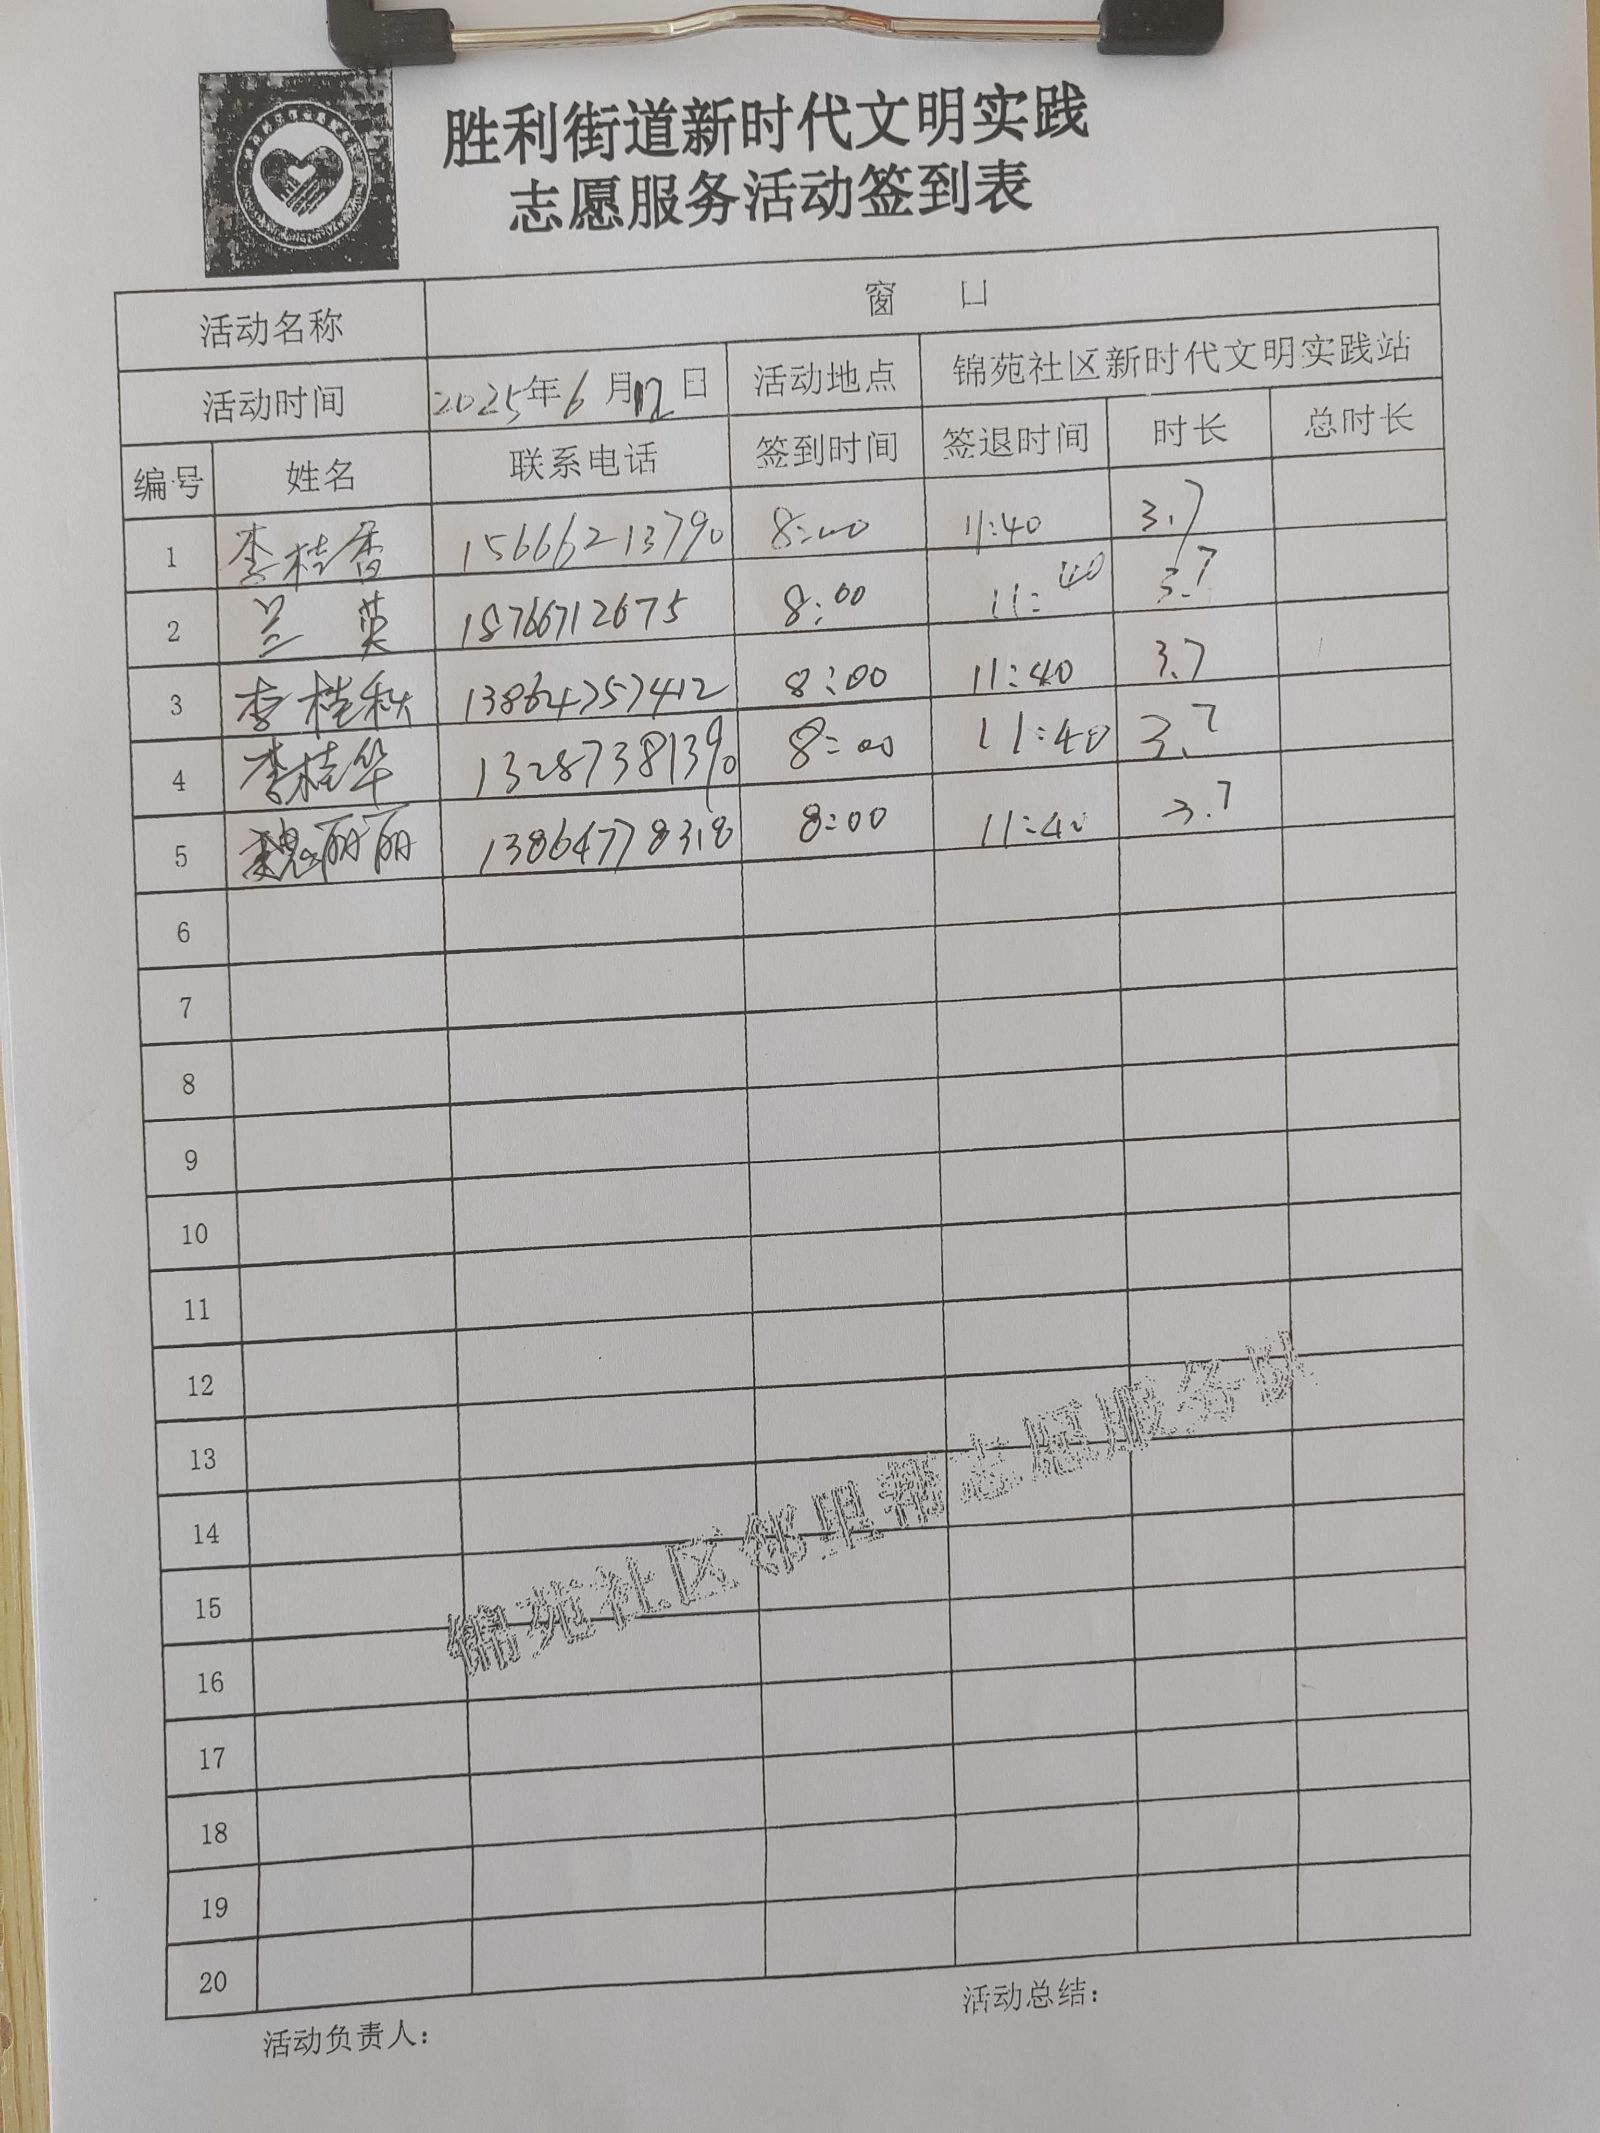 胜利街道新时代文明实践
志愿服务活动签到表
活动名称 窗 口
活动时间 2025年6月12日 活动地点 锦苑社区新时代文明实践站
编号 姓名 联系电话 签到时间 签退时间 时长 总时长
1 李桂香 15666213790 8:00 11:40 3.7
2 兰英 18766712675 8:00 11:40 3.7
3 李桂秋 13864757412 8:00 11:40 3.7
4 李桂华 13287381390 8:00 11:40 3.7
5 魏丽丽 13864778318 8:00 11:40 3.7
6
7
8
9
10
11
12
13
14
15
16
17
18
19
20
锦苑社区邻里帮志愿服务队
活动负责人： 活动总结：